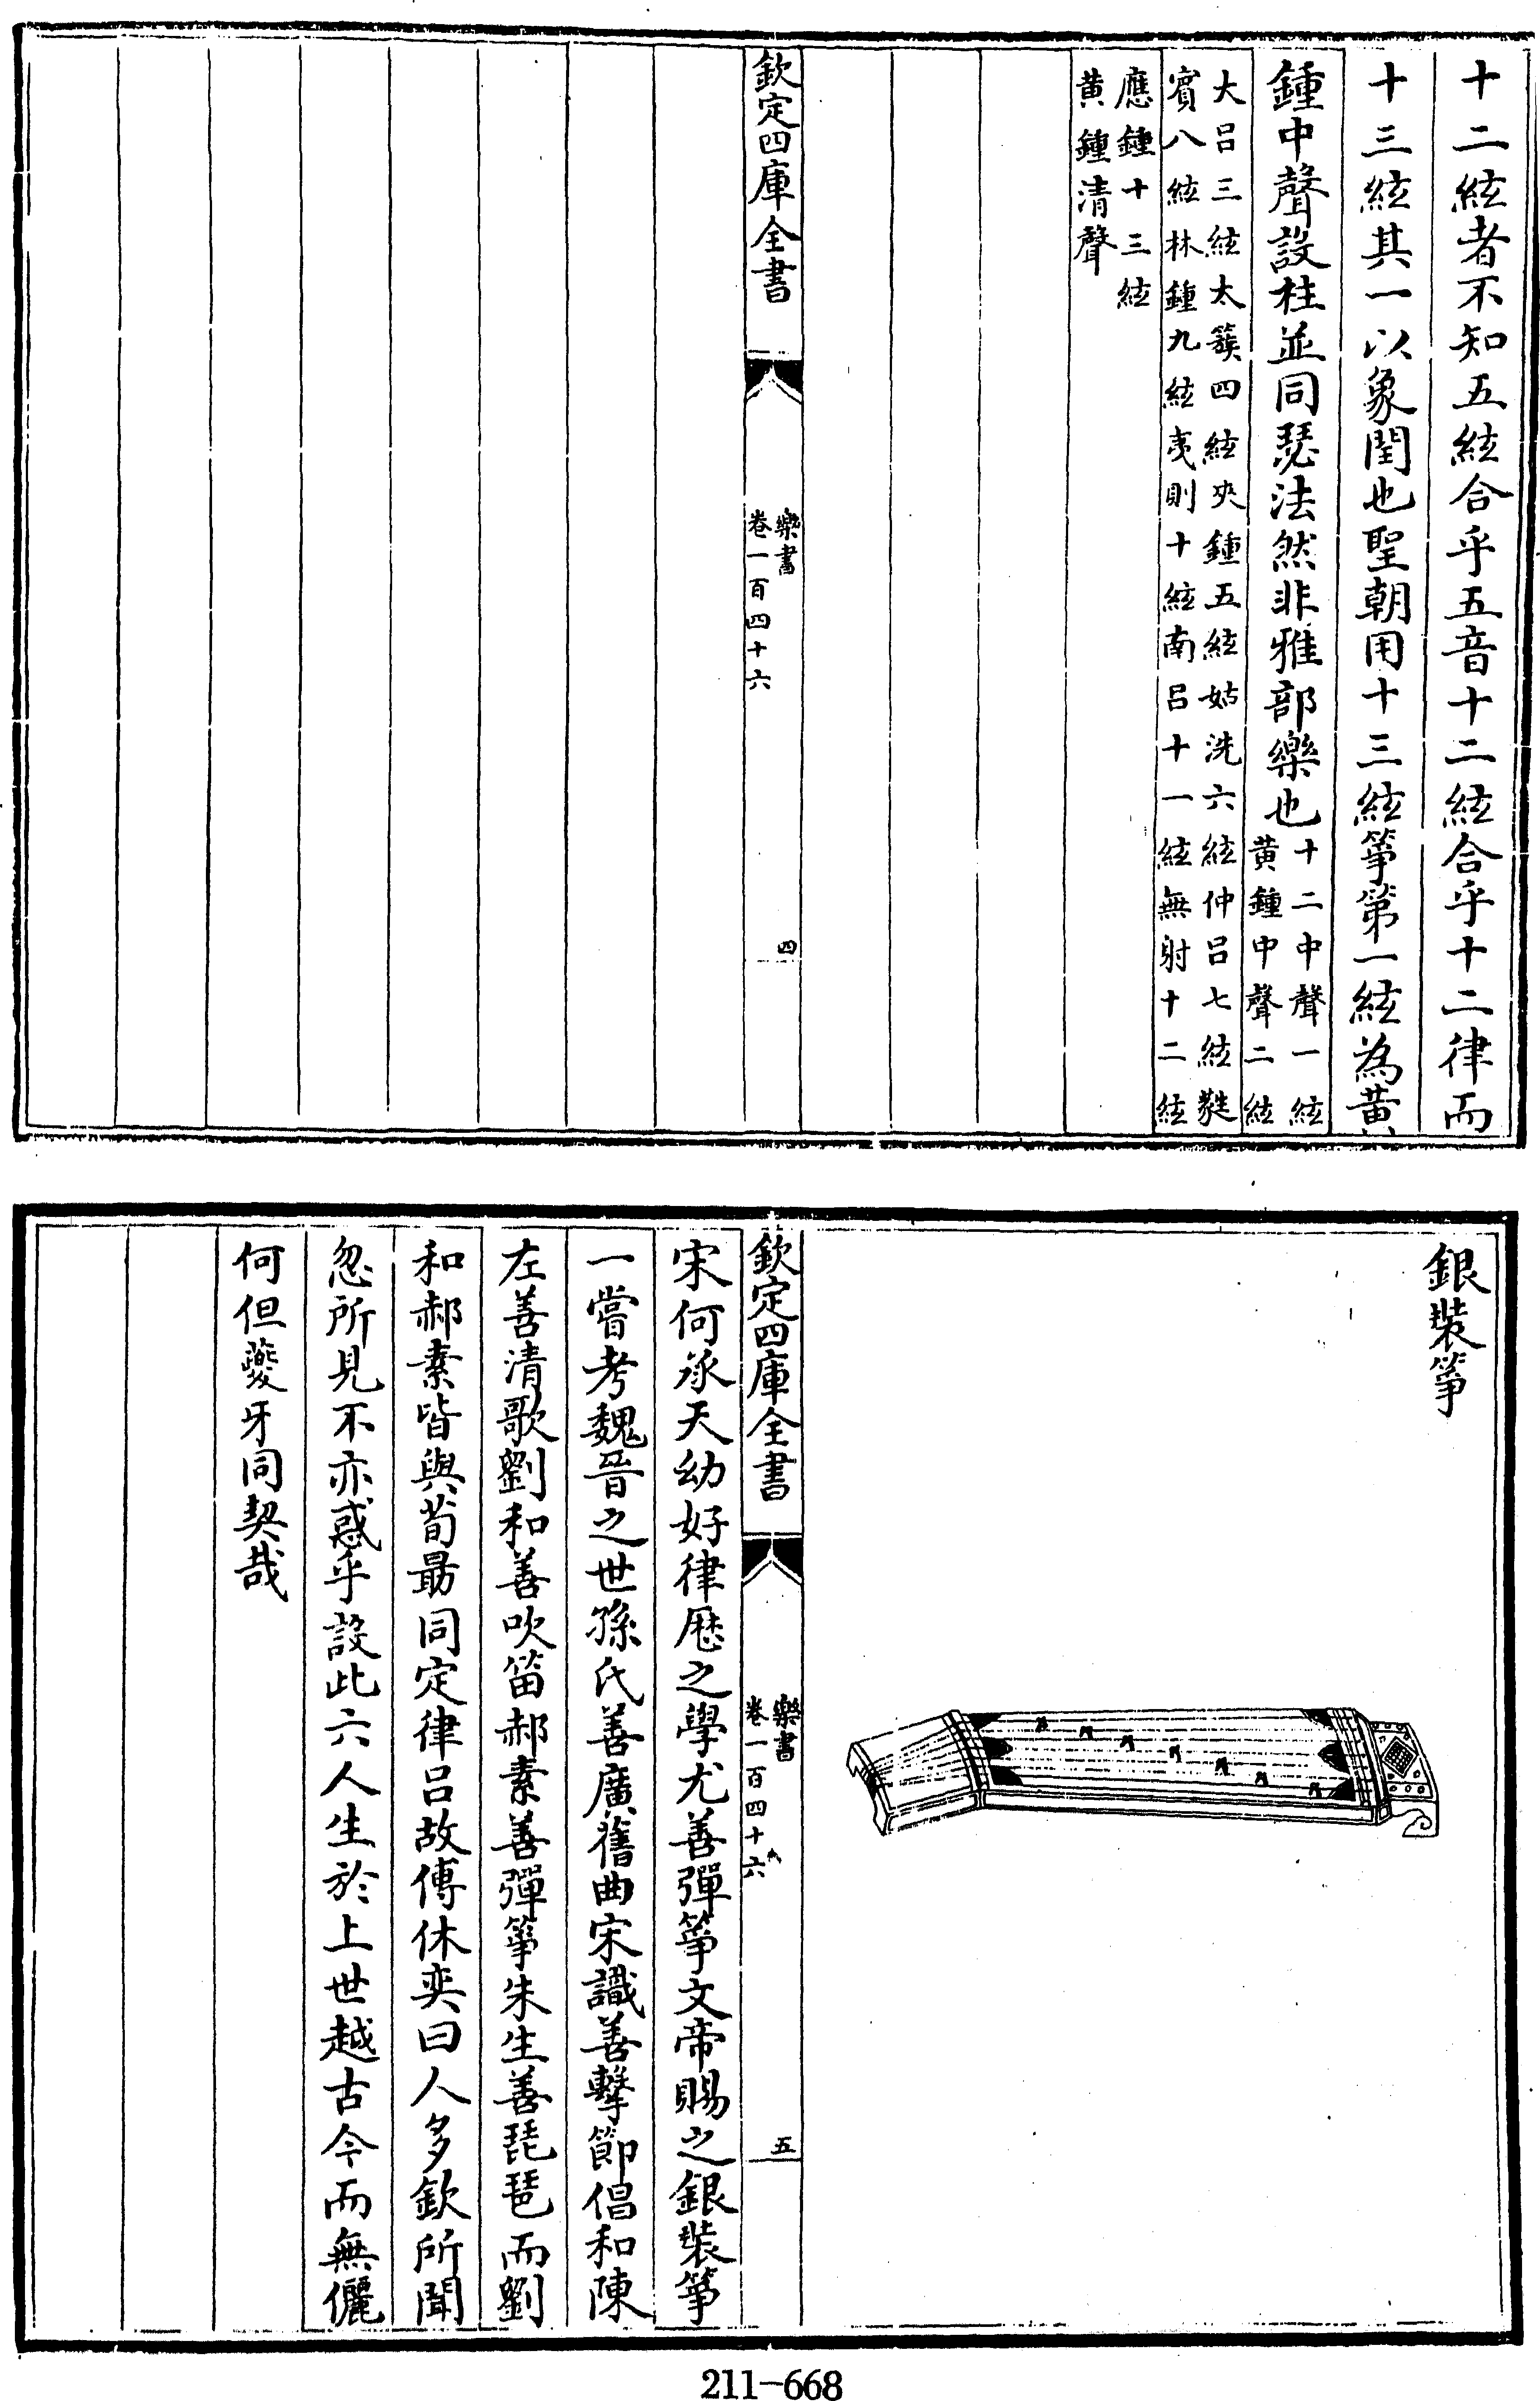 十二絃者不知五絃合乎五音十二絃合乎十二律而
十三絃其一以象閏也聖朝用十三絃箏第一絃為黃
鍾中聲設柱並同瑟法然非雅部樂也
十二中聲一絃
黃鍾中聲二絃
大呂三絃太簇四絃夾鍾五絃姑洗六絃仲呂七絃蕤
賓八絃林鍾九絃夷則十絃南呂十一絃無射十二絃
應鍾十三絃
黃鍾清聲
欽定四庫全書
樂書
卷一百四十六
四
銀裝箏
欽定四庫全書
樂書
卷一百四十六
五
宋何承天幼好律歷之學尤善彈箏文帝賜之銀裝箏
一嘗考魏晉之世孫氏善廣舊曲宋識善擊節倡和陳
左善清歌劉和善吹笛郝素善彈箏朱生善琵琶而劉
和郝素皆與荀勗同定律呂故傅休奕曰人多欽所聞
忽所見不亦惑乎設此六人生於上世越古今而無儷
何但夔牙同契哉
211-668